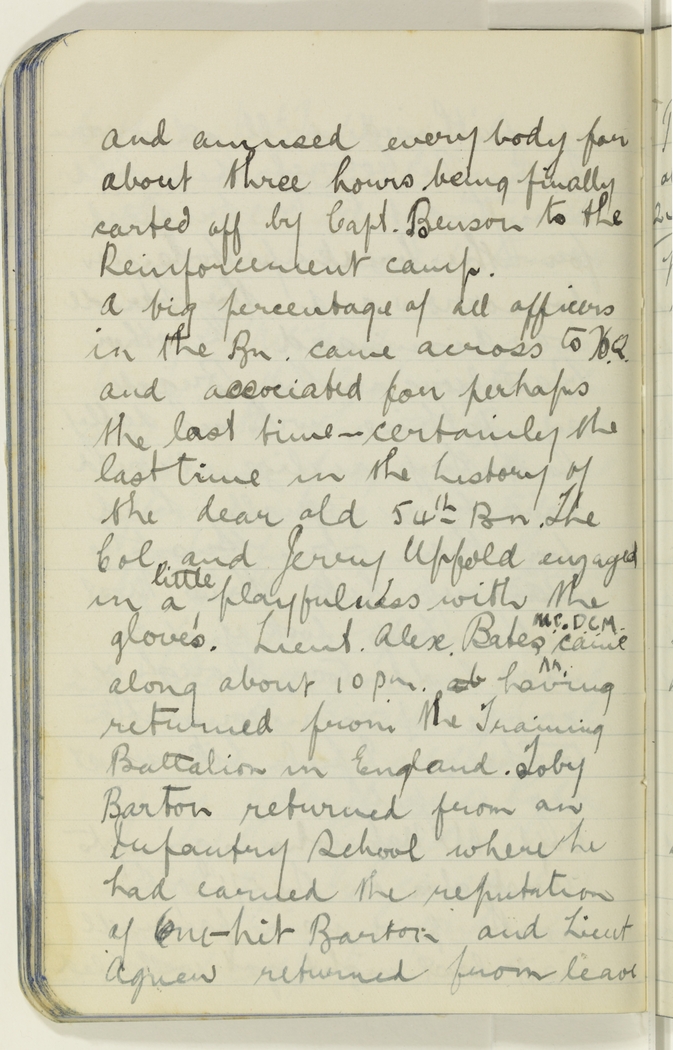 and amused everybody for
about three hours being finally
carted off by Capt. Benson to the
Reinforcement camp.
A big percentage of all officers
in the Bn. came across to H.Q.
and associated for perhaps
the last time – certainly the
last time in the history of
the dear old 54th Bn. The
Col. and Jerry Upfold engaged
in a little playfulness with the
gloves. Lieut. Alex. Bates, M.C. D.C.M. came
along about 10 pm. having
returned from the Training
Battalion in England. Toby
Barton returned from an
Infantry School where he
had earned the reputation
of One-hit Barton and Lieut
Agnew returned from leave